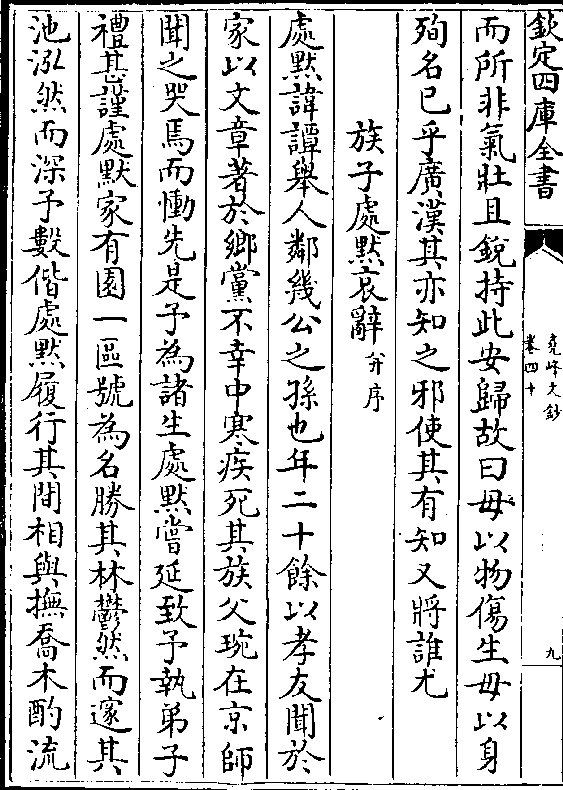 欽定四庫全書
堯峰文鈔
卷四十
九
而所非氣壯且銳持此安歸故曰毋以物傷生毋以身
殉名已乎廣漢其亦知之邪使其有知又將誰尤
族子處默哀辭并序
處默諱譚舉人鄰幾公之孫也年二十餘以孝友聞於
家以文章著於鄉黨不幸中寒疾死其族父琬在京師
聞之哭焉而慟先是予為諸生處默嘗延致予執弟子
禮甚謹處默家有園一區號為名勝其林鬱然而邃其
池泓然而深予數偕處默履行其間相與撫喬木酌流